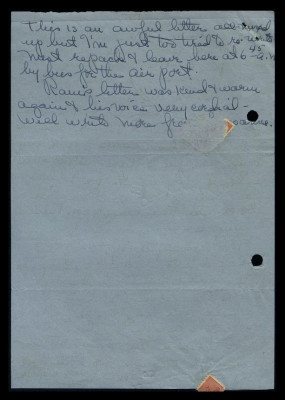 This is an awful letter all mixed
up but I'm just too tired to re-write
Must repack & leave here at 6 45 a.m
by bus for the air port.
Ram's letter was kind & warm
again & his voice very cordial -
Will write more from